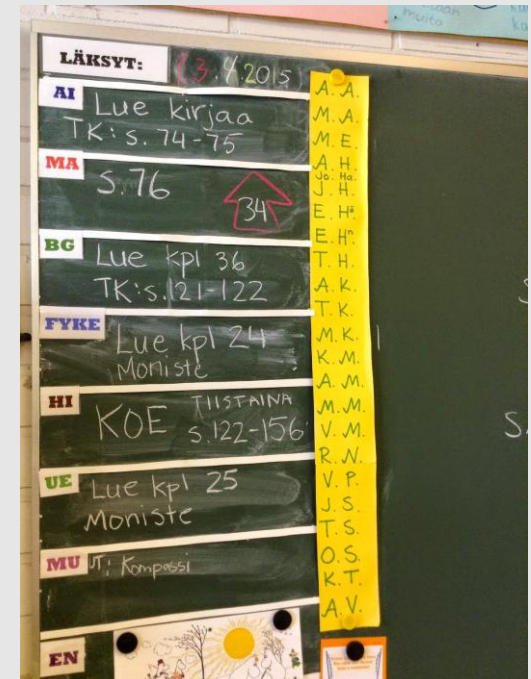 muita
LÄKSYT: 13.4.2015
AI Lue kirjaa
TK: s. 74-75
MA s.76
34
BG Lue kpl 36
TK:s.121-122
FYKE Lue kpl 24
Moniste
HI KOE TIISTAINA
s.122-156
UE Lue kpl 25
Moniste
MU Kompassi
EN
A. A.
M. A.
M. E.
A. H.
Jo. Ha.
J. H.
E. Hä.
E. Hn.
T. H.
A. K.
T. K.
M. K.
K. M.
A. M.
M. M.
V. M.
R. N.
V. P.
J. S.
T. S.
O. S.
K. T.
A. V.